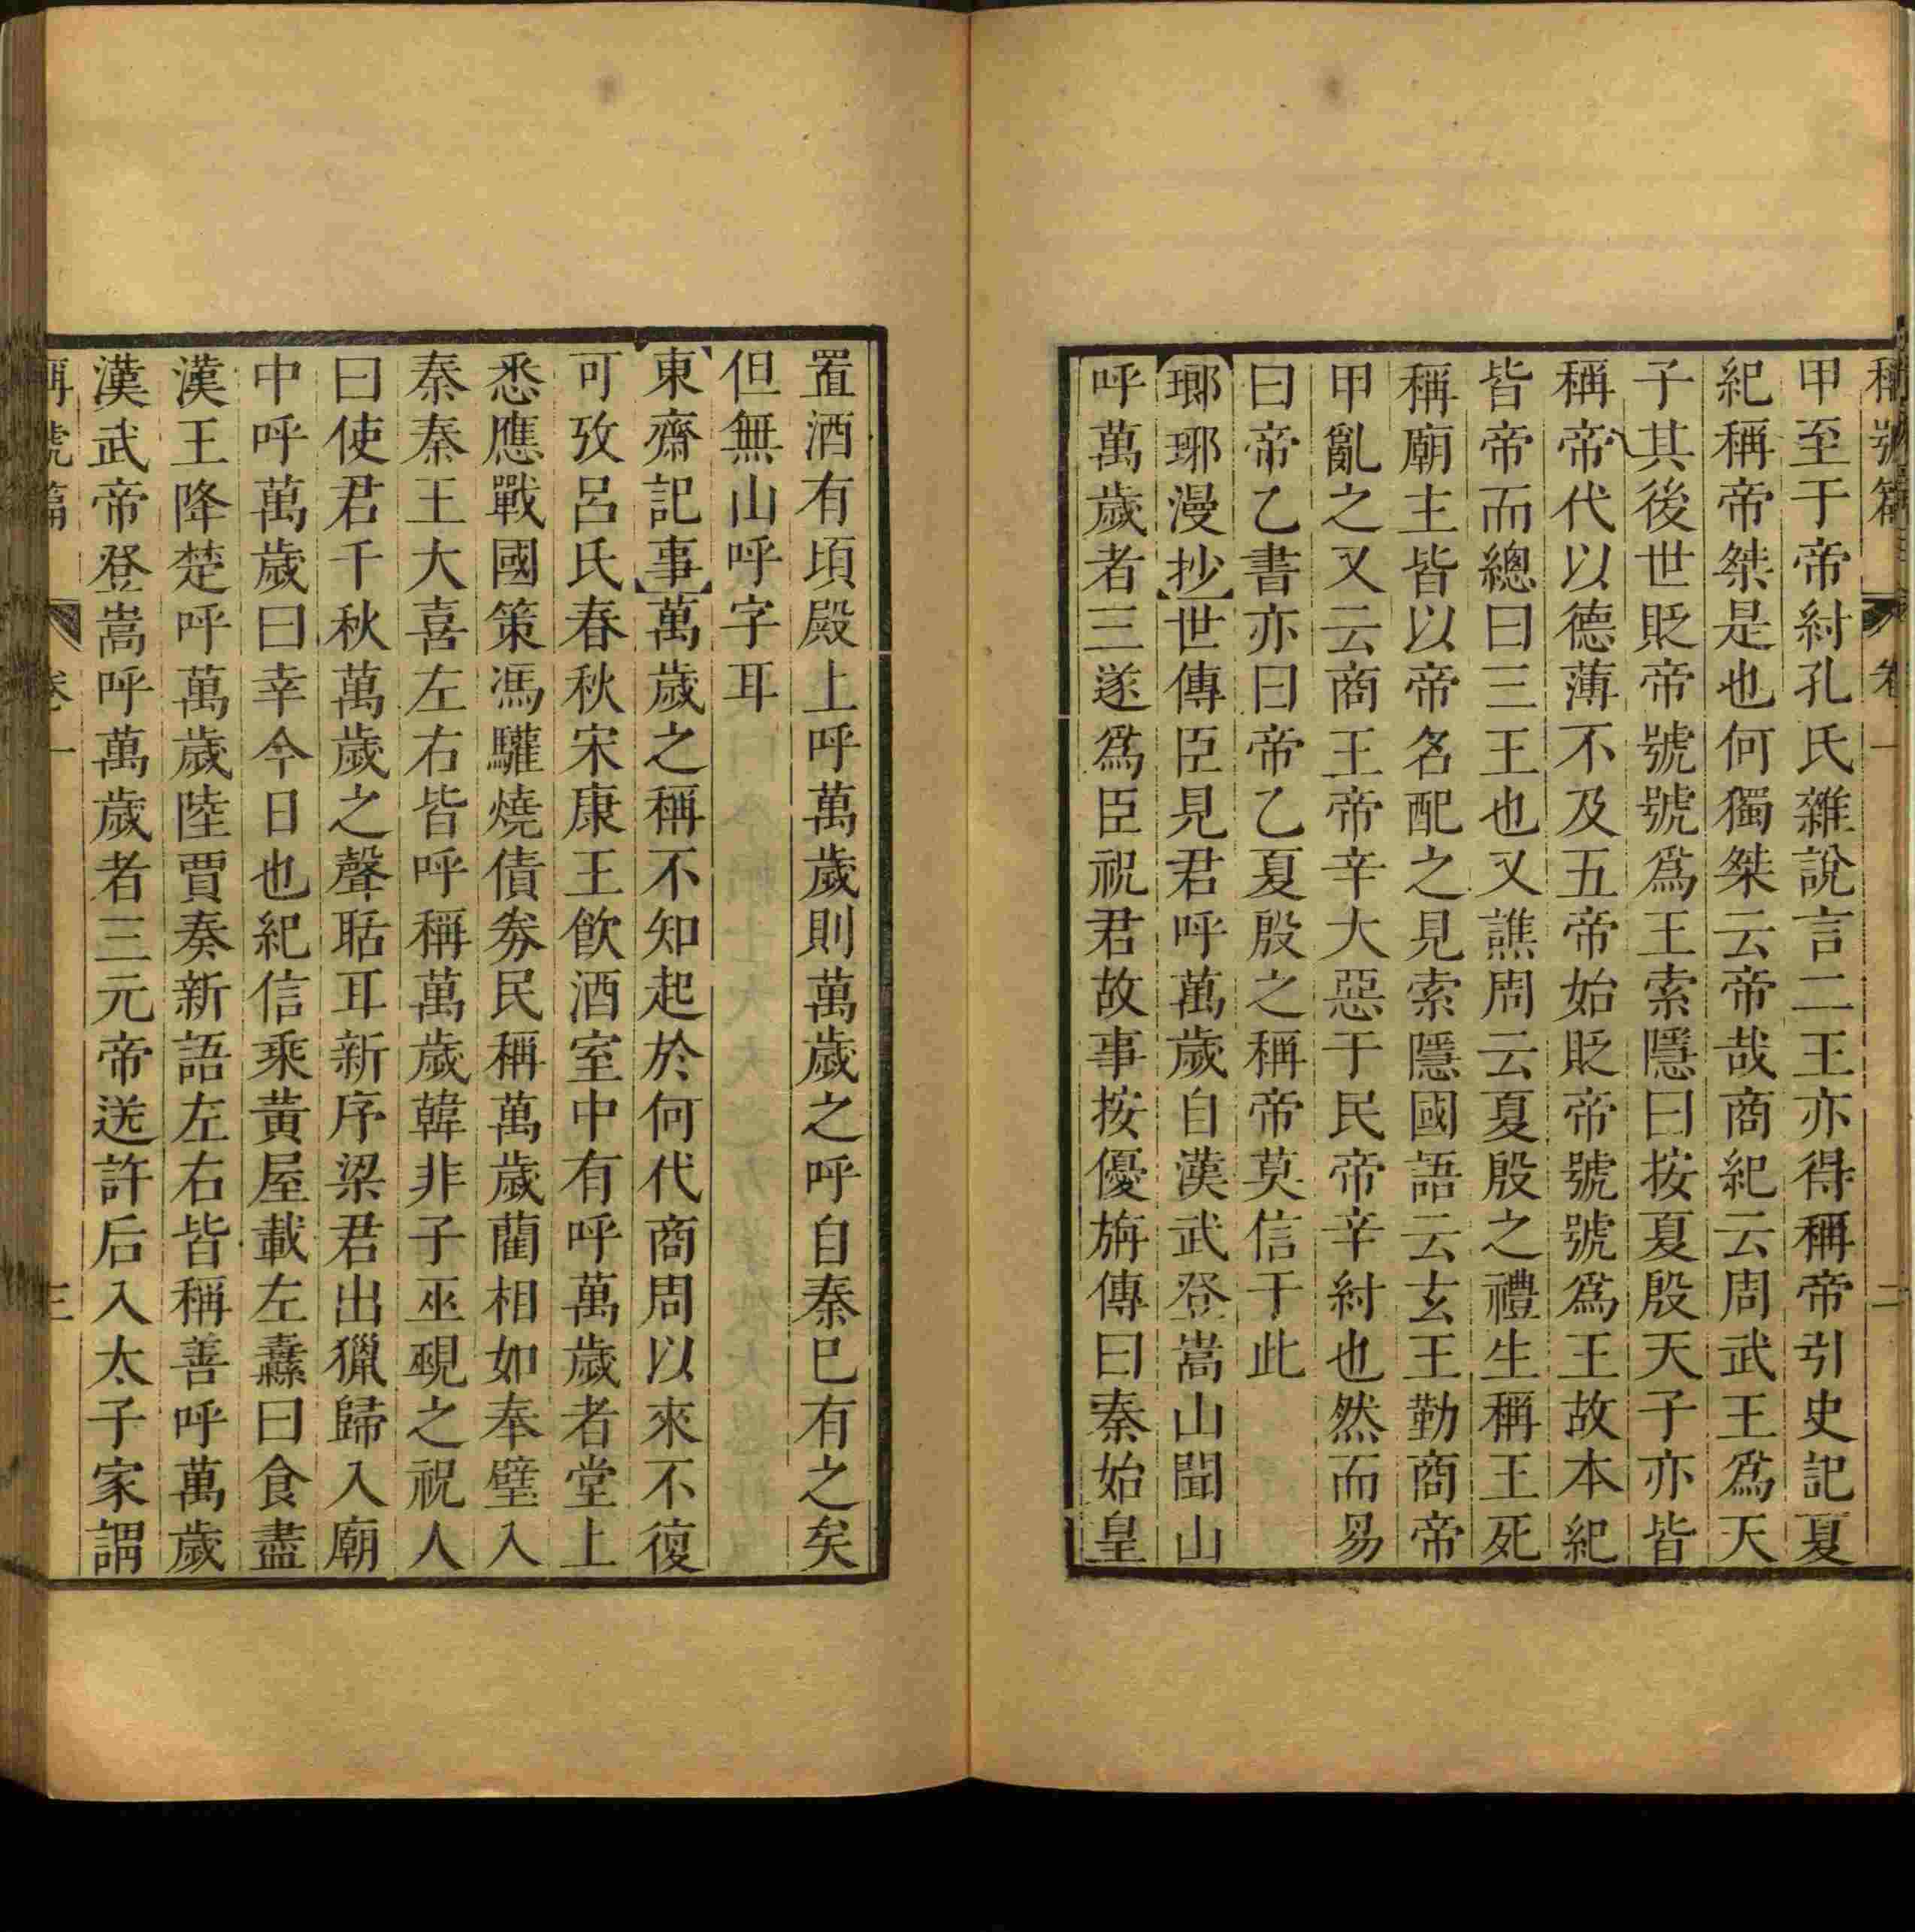 稱號篇 卷一 二
甲至于帝紂孔氏雜說言二王亦得稱帝引史記夏
紀稱帝桀是也何獨桀云帝哉商紀云周武王爲天
子其後世貶帝號號爲王索隱曰按夏殷天子亦皆
稱帝代以德薄不及五帝始貶帝號號爲王故本紀
皆帝而總曰三王也又譙周云夏殷之禮生稱王死
稱廟主皆以帝名配之見索隱國語云玄王勤商帝
甲亂之又云商王帝辛大惡于民帝辛紂也然而易
曰帝乙書亦曰帝乙夏殷之稱帝莫信于此
瑯琊漫抄世傳臣見君呼萬歲自漢武登嵩山聞山
呼萬歲者三遂爲臣祝君故事按優旃傳曰秦始皇
置酒有頃殿上呼萬歲則萬歲之呼自秦已有之矣
但無山呼字耳
東齋記事萬歲之稱不知起於何代商周以來不復
可攷呂氏春秋宋康王飮酒室中有呼萬歲者堂上
悉應戰國策馮驩燒債劵民稱萬歲藺相如奉璧入
秦秦王大喜左右皆呼稱萬歲韓非子巫覡之祝人
曰使君千秋萬歲之聲聒耳新序梁君出獵歸入廟
中呼萬歲曰幸今日也紀信乘黃屋載左纛曰食盡
漢王降楚呼萬歲陸賈奏新語左右皆稱善呼萬歲
漢武帝登嵩呼萬歲者三元帝送許后入太子家謂
稱號篇 卷一 三